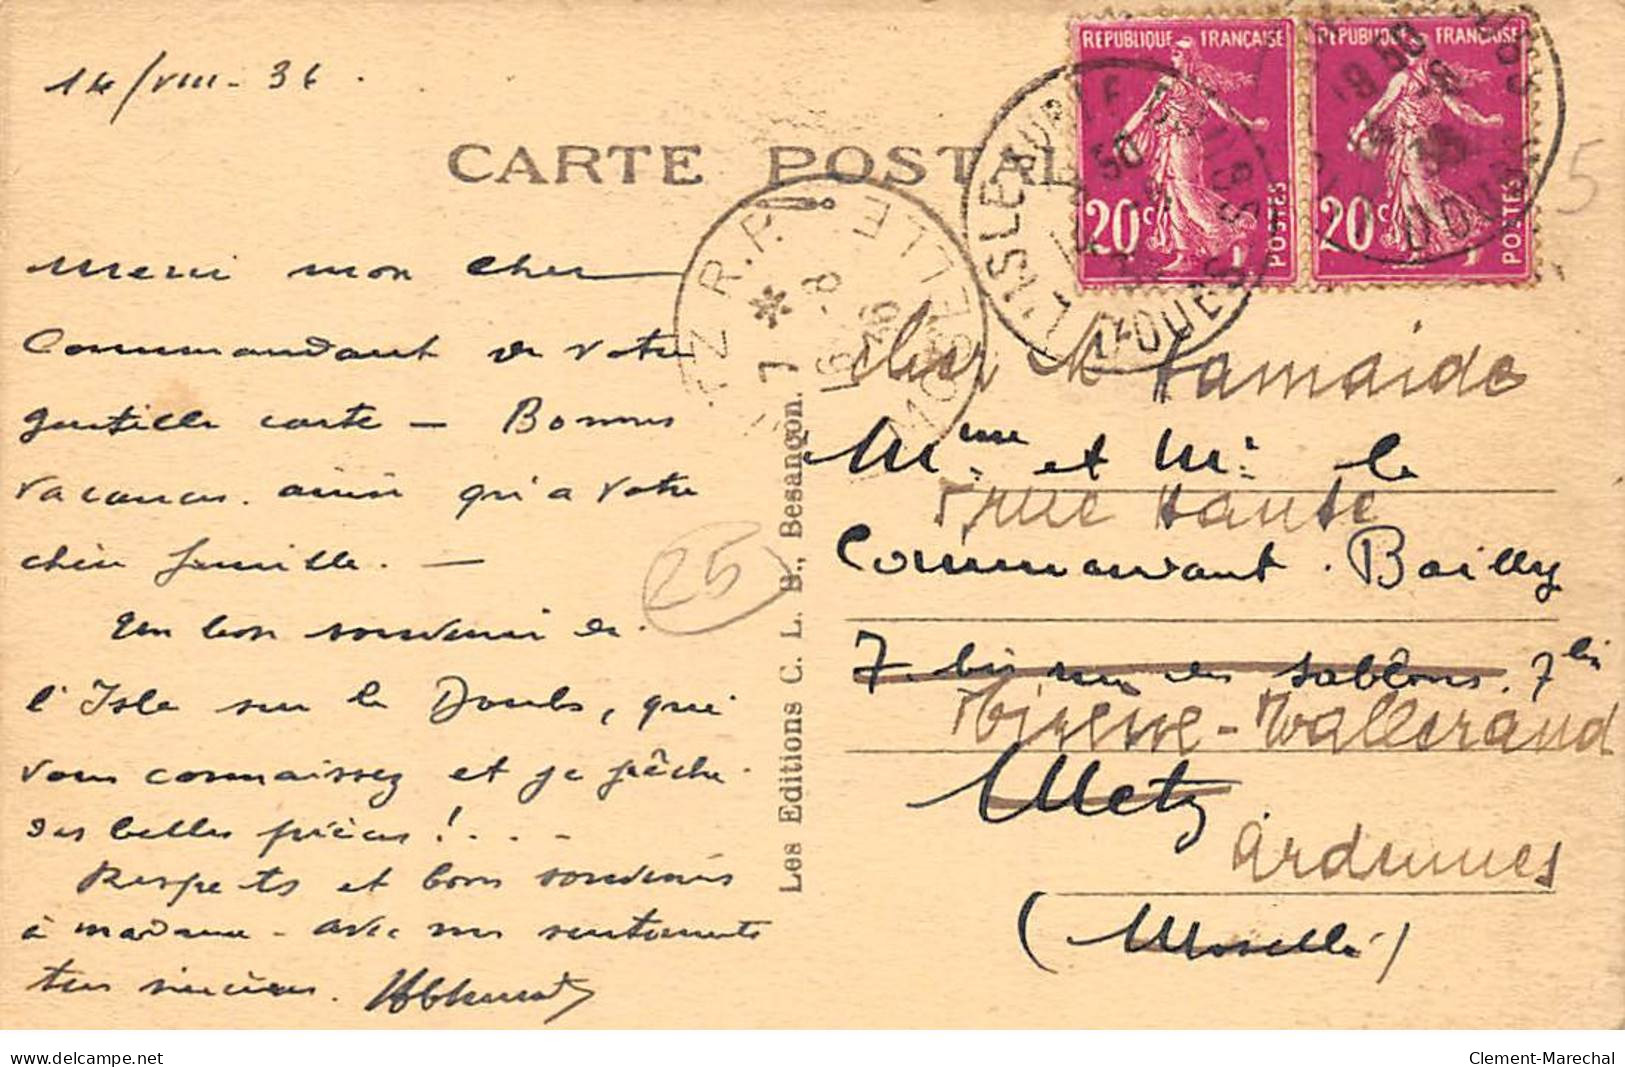 14/VIII-36.
CARTE POSTAL
REPUBLIQUE FRANÇAISE
20c POSTES
REPUBLIQUE FRANÇAISE
20c POSTES
L'ISLE SUR LE DOUBS
DOUBS
R.P.
MOSELLE
7 * 16-8 36
5
Merci mon cher
Commandant de votre
gentille carte - Bonnes
vacances. ainsi qu'a votre
chère famille. -
Un bon souvenir de
l'Isle sur le Doubs, que
vous connaissez et je pêche
des belles pièces!...
Respects et bons souvenirs
à madame - avec mes sentiments
très sincères.
25
Les Editions C. L. B., Besançon.
chez M Lamaide
Mme et Mr le
rue haute
Commandant. Bailly
7 bis rue des Sablons. 7 bis
Vireux-Wallerand
Metz
Ardennes
(Moselle)
delcampe.net
Clement-Marechal